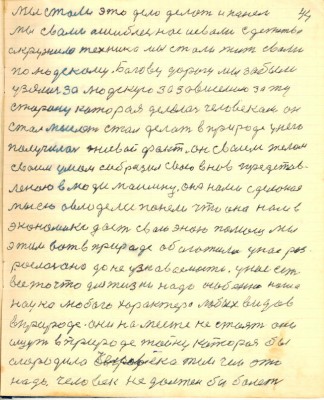 44
Мы стали это дело делат и нанем
мы своими ошибок насаевали с детства
окружило техника мы стали жит своим
по людскому. Богову дорогу мы забыли
узялиза людскую за зависемию за ту
сторону которая делала человекам он
стал мыслит стал делат в природе у него
получился живой факт. он своим телом
своим умом собразил свою вновь представ-
леною в люди машину, она нами сделоная
мысю овлодели поняли что она нам в
економике даст свою знаю помощ мы
этим вот в природе обоготили у нас раз-
рослось оно до не узнаваемости. у нас ест
все то что для жизни надо особено наша
наука любого характера любых видов
в природе. они на месте не стоят они
ищут в природе тайну которая бы
огородила человека тем чем это
надо. человек не должен бы болет